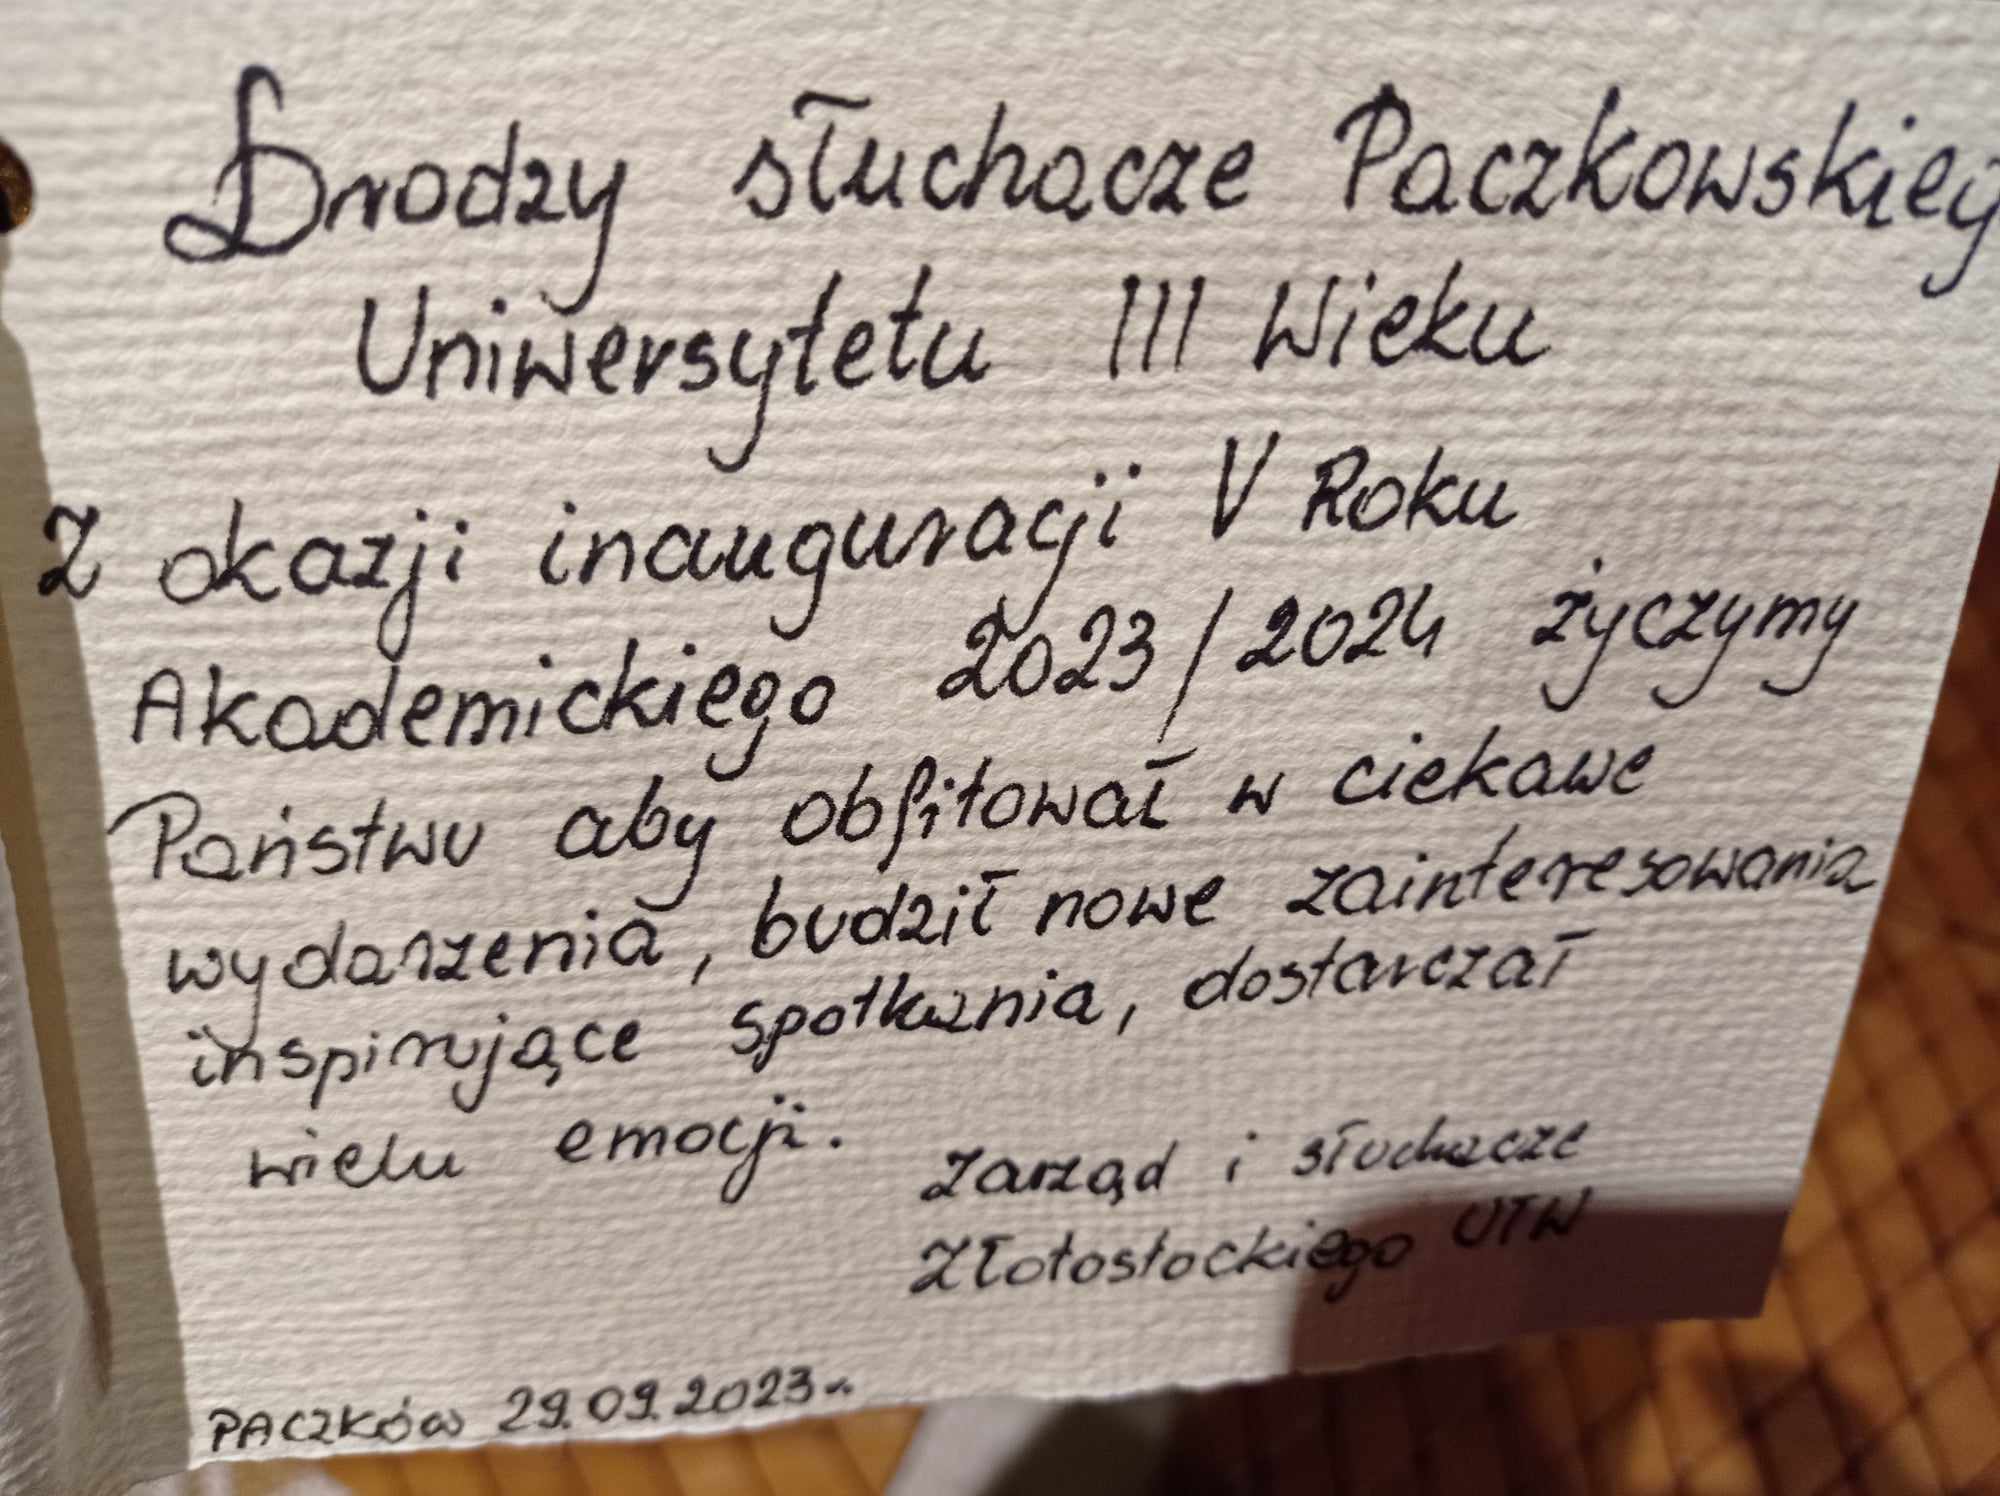 Drodzy słuchacze Paczkowskiej
Uniwersytetu III Wieku
Z okazji inauguracji V Roku
Akademickiego 2023/2024 życzymy
Państwu aby obfitował w ciekawe
wydarzenia, budził nowe zainteresowania
inspirujące spotkania, dostarczał
wielu emocji.
Zarząd i słuchacze
Złotostockiego UTW
PACZKÓW 29.09.2023r.